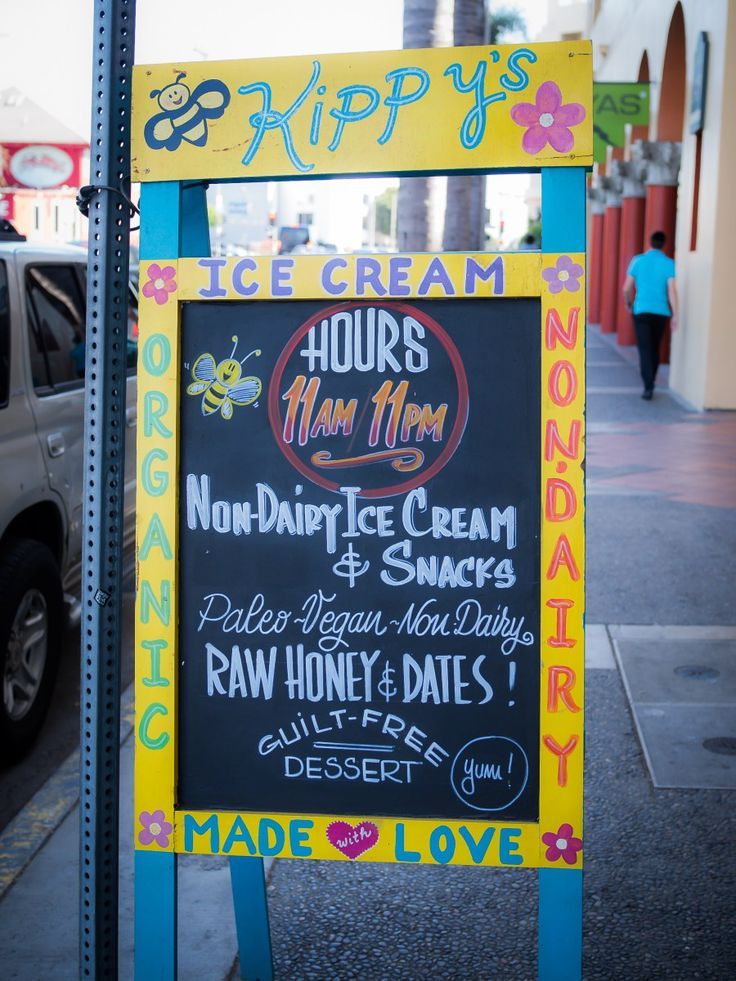 Kippy's
ICE CREAM
ORGANIC
NON-DAIRY
HOURS
11AM/11PM
Non-Dairy Ice Cream
& Snacks
Paleo~Vegan~Non-Dairy
RAW HONEY & DATES!
GUILT-FREE
DESSERT
yum!
MADE with LOVE
YAS